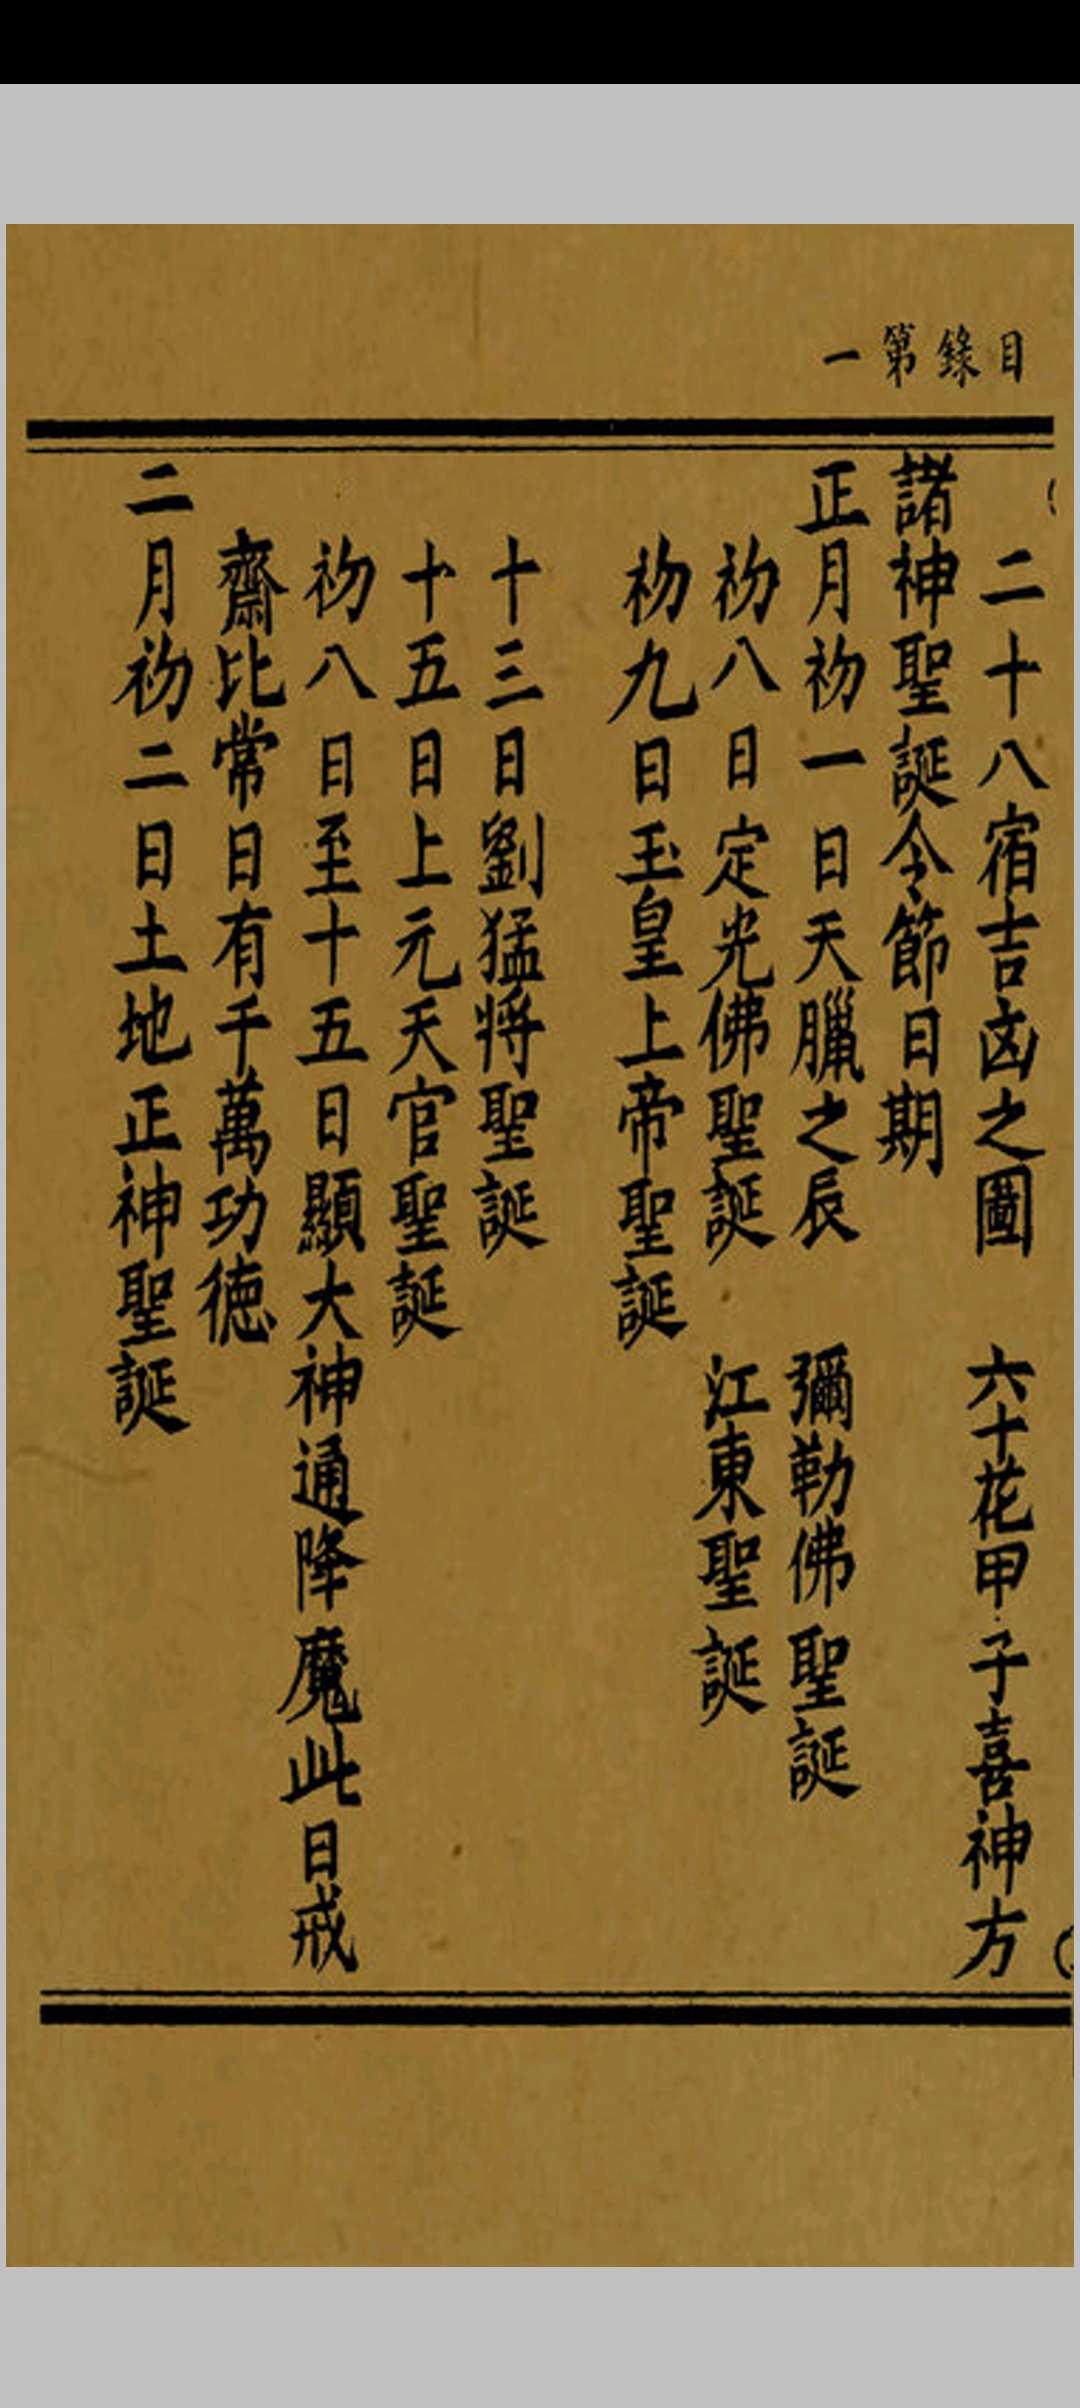 目錄第一
二十八宿吉凶之圖 六十花甲子喜神方
諸神聖誕令節日期
正月初一日天臘之辰 彌勒佛聖誕
初八日定光佛聖誕 江東聖誕
初九日玉皇上帝聖誕
十三日劉猛將聖誕
十五日上元天官聖誕
初八日至十五日顯大神通降魔此日戒
齋比常日有千萬功德
二月初二日土地正神聖誕